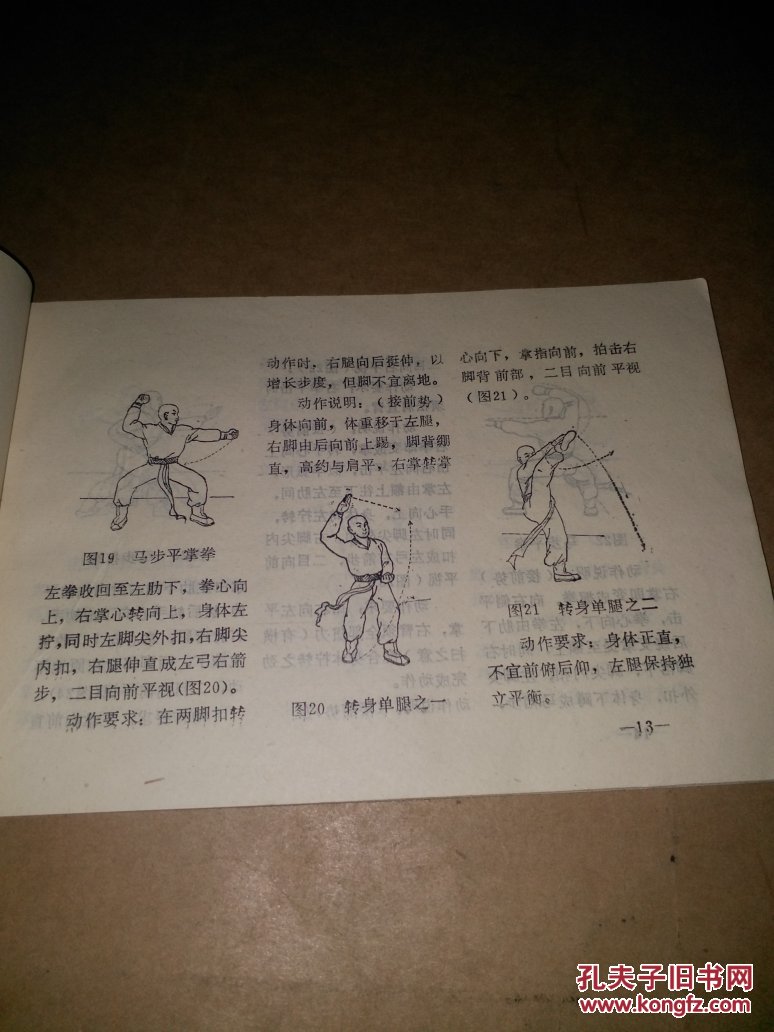 图19　马步平掌拳
左拳收回至左肋下，拳心向
上，右掌心转向上，身体左
拧，同时左脚尖外扣，右脚尖
内扣，右腿伸直成左弓右箭
步，二目向前平视（图20）。
动作要求：在两脚扣转
动作时，右腿向后挺伸，以
增长步度，但脚不宜离地。
动作说明：（接前势）
身体向前，体重移于左腿，
右脚由后向前上踢，脚背绷
直，高约与肩平，右掌转掌
图20　转身单腿之一
心向下，掌指向前，拍击右
脚背前部，二目向前平视
（图21）。
图21　转身单腿之二
动作要求：身体正直，
不宜前俯后仰，左腿保持独
立平衡。
—13—
孔夫子旧书网
www.kongfz.com